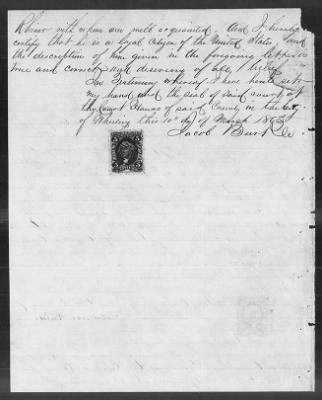 Rhino with whom am well acquainted. And I hereby
certify that he is a loyal Citizen of the United States, and
the description of him given in the foregoing
true and correct
In Testimony whereof I have here set
my hand and the seal of said court at
the court House of said County in the City
of Wheeling this 10th day of March 1865
Jacob